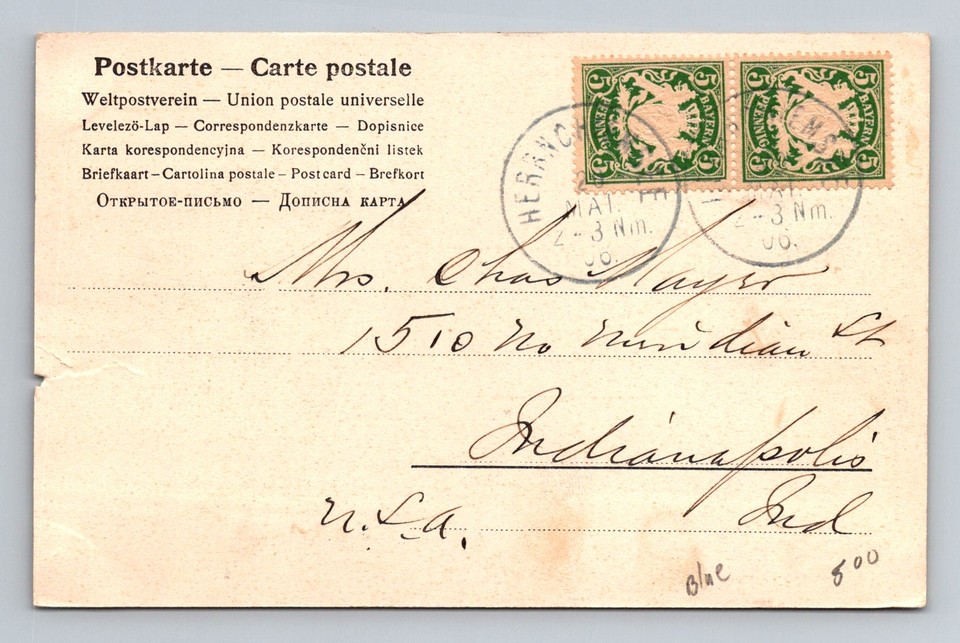 Postkarte — Carte postale
Weltpostverein — Union postale universelle
Levelező-Lap — Correspondenzkarte — Dopisnice
Karta korespondencyjna — Korespondenčni listek
Briefkaart – Cartolina postale – Post card – Brefkort
Открытое-письмо — Дописна карта
5 5 5 5
BAYERN
PFENNIG
5 5 5 5
BAYERN
PFENNIG
MAI.
2-3 Nm.
06.
MAI.
2-3 Nm.
06.
Mrs. Chas Mayer
1510 No Meridian St
Indianapolis
U.S.A. Ind
Blue 500